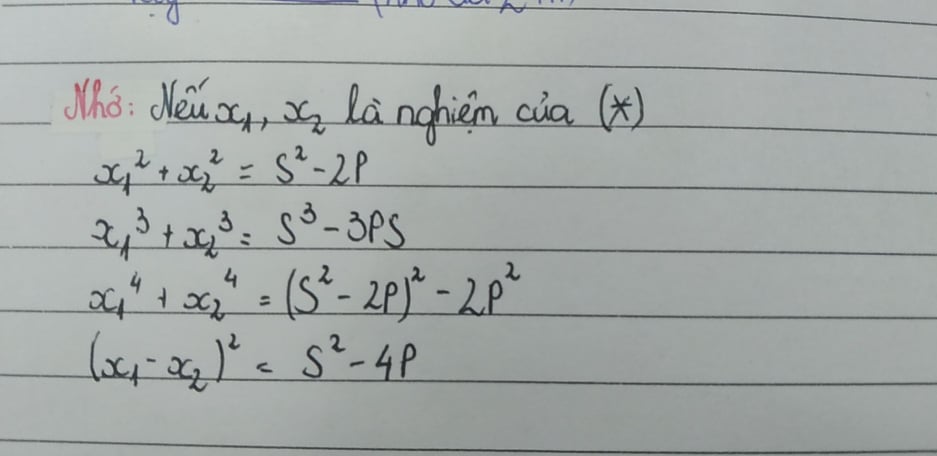 Nhớ: Nếu x₁, x₂ là nghiệm của (*)
x₁² + x₂² = S² - 2P
x₁³ + x₂³ = S³ - 3PS
x₁⁴ + x₂⁴ = (S² - 2P)² - 2P²
(x₁ - x₂)² = S² - 4P